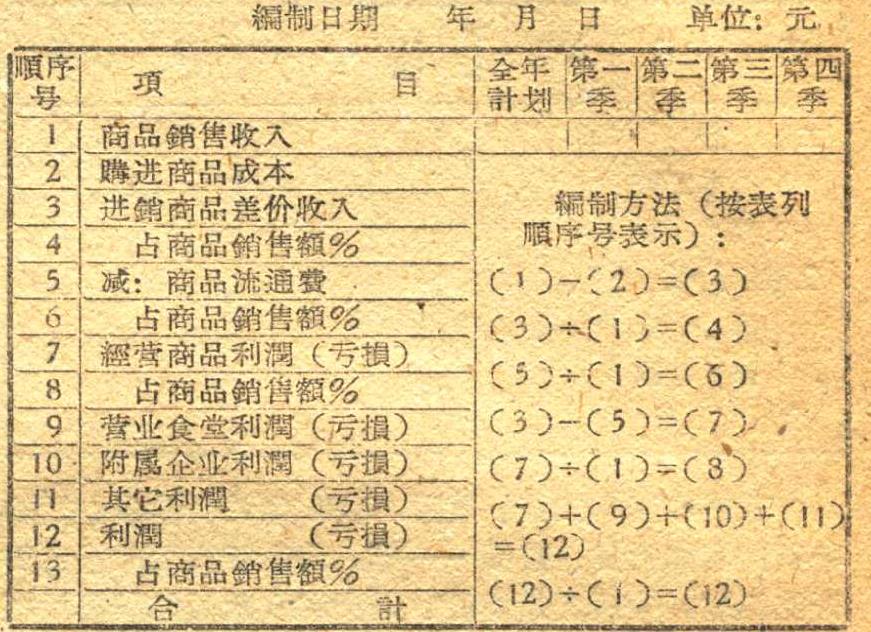 編制日期 年 月 日 单位：元
順序号 項 目 全年計划 第一季 第二季 第三季 第四季
1 商品銷售收入
2 購进商品成本
3 进銷商品差价收入
4 占商品銷售額%
5 减：商品流通費
6 占商品銷售額%
7 經营商品利潤（亏損）
8 占商品銷售額%
9 营业食堂利潤（亏損）
10 附属企业利潤（亏損）
11 其它利潤 （亏損）
12 利潤 （亏損）
13 占商品銷售額%
合 計
編制方法（按表列
順序号表示）：
(1)−(2)=(3)
(3)÷(1)=(4)
(5)÷(1)=(6)
(3)−(5)=(7)
(7)÷(1)=(8)
(7)+(9)+(10)+(11)
=(12)
(12)÷(1)=(12)